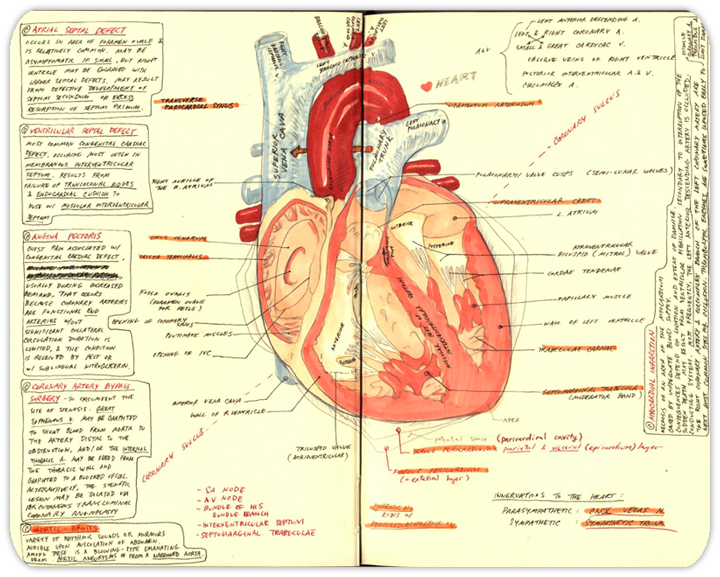 ① ATRIAL SEPTAL DEFECT
OCCURS IN AREA OF FORAMEN OVALE &
IS RELATIVELY COMMON. MAY BE
ASYMPTOMATIC IF SMALL, BUT RIGHT
VENTRICLE MAY BE ENLARGED WITH
LARGER SEPTAL DEFECTS. MAY RESULT
FROM DEFECTIVE DEVELOPMENT OF
SEPTUM SECUNDUM OR EXCESS
RESORPTION OF SEPTUM PRIMUM.
② VENTRICULAR SEPTAL DEFECT
MOST COMMON CONGENITAL CARDIAC
DEFECT, OCCURING MOST OFTEN IN
MEMBRANOUS INTERVENTRICULAR
SEPTUM. RESULTS FROM
FAILURE OF TRUNCOCONAL RIDGES
& ENDOCARDIAL CUSHION TO
FUSE W/ MUSCULAR INTERVENTRICULAR
SEPTUM
③ ANGINA PECTORIS
CHEST PAIN ASSOCIATED W/
CONGENITAL CARDIAC DEFECT,
USUALLY DURING INCREASED
DEMAND, THAT OCCURS
BECAUSE CORONARY ARTERIES
ARE FUNCTIONAL END
ARTERIES W/OUT
SIGNIFICANT COLLATERAL
CIRCULATION. DURATION IS
LIMITED, & THE CONDITION
IS RELIEVED BY REST OR
W/ SUBLINGUAL NITROGLYCERIN.
④ CORONARY ARTERY BYPASS
SURGERY - TO CIRCUMVENT THE
SITE OF STENOSIS. GREAT
SAPHENOUS V. MAY BE GRAFTED
TO SHUNT BLOOD FROM AORTA TO
THE ARTERY DISTAL TO THE
OBSTRUCTION, AND/OR THE INTERNAL
THORACIC A. MAY BE FREED FROM
THE THORACIC WALL AND
GRAFTED TO A BLOCKED VESSEL.
ALTERNATIVELY, THE STENOTIC
LESION MAY BE DILATED VIA
PERCUTANEOUS TRANSLUMINAL
CORONARY ANGIOPLASTY
AORTIC BRUITS
VARIETY OF RHYTHMIC SOUNDS OR MURMURS
AUDIBLE UPON AUSCULATION OF ABDOMEN.
AMONG THESE IS A BLOWING-TYPE EMANATING
FROM AORTIC ANEURYSMS OR FROM A NARROWED AORTA.
TRANSVERSE
PERICARDIAL SINUS
RIGHT AURICLE OF
THE R. ATRIUM
SINUS VENARUM
CRISTA TERMINALIS
FOSSA OVALIS
(FORAMEN OVALE
FOR FETUS)
OPENING OF CORONARY
SINUS
PECTINATE MUSCLES
OPENING OF IVC
INFERIOR VENA CAVA
WALL OF R. VENTRICLE
CORONARY SULCUS
TRICUSPID VALVE
(ATRIOVENTRICULAR)
- SA NODE
- AV NODE
- BUNDLE OF HIS
BUNDLE BRANCH
- INTERVENTRICULAR SEPTUM
- SEPTOMARGINAL TRABECULAE
SUPERIOR
VENA CAVA
PULMONARY
TRUNK
LEFT
PULMONARY A.
ANTERIOR
POSTERIOR
ANTERIOR
MUSCULAR
INTERVENTRICULAR
SEPTUM
A&V
LEFT ANTERIOR DESCENDING A.
LEFT & RIGHT CORONARY A.
SMALL & GREAT CARDIAC V.
OBLIQUE VEINS OF RIGHT VENTRICLE
POSTERIOR INTERVENTRICULAR A & V.
CIRCUMFLEX A.
HEART
LIGAMENTUM ARTERIOSUM
CORONARY SULCUS
PULMONARY VALVE CUSPS (SEMI-LUNAR VALVES)
SUPRAVENTRICULAR CREST
L. ATRIUM
ATRIOVENTRICULAR
BICUSPID (MITRAL) VALVE
CORDAE TENDENAE
PAPILLARY MUSCLE
WALL OF LEFT VENTRICLE
TRABECULAE CARNAE
SEPTOMARGINAL TRABECULA
(MODERATOR BAND)
APEX
(pericardial cavity)
SEROUS PERICARDIUM parietal & visceral (epicardium) layer
FIBROUS PERICARDIUM
(= external layer)
INNERVATIONS TO THE HEART:
PARASYMPATHETIC : CNX VAGUS N.
SYMPATHETIC : SYMPATHETIC TRUNK
MYOCARDIAL INFARCTION
NECROSIS OF AN AREA OF THE MYOCARDIUM
CAUSED BY INADEQUATE BLOOD SUPPLY.
CONSEQUENCES DEPEND ON LOCATION AND EXTENT OF DAMAGE.
SUDDEN DEATH MAY RESULT FROM VENTRICULAR FIBRILLATION SECONDARY TO INTERRUPTION OF THE
CONDUCTING SYSTEM. MOST FREQUENTLY, THE LEFT ANTERIOR DESCENDING ARTERY IS OCCLUDED;
THE RIGHT CORONARY ARTERY & CIRCUMFLEX BRANCH OF THE LEFT CORONARY ARTERY ARE
NEXT MOST COMMON SITES OF OCCLUSION. THROMBOLYTIC ENZYMES ARE SOMETIMES INFUSED